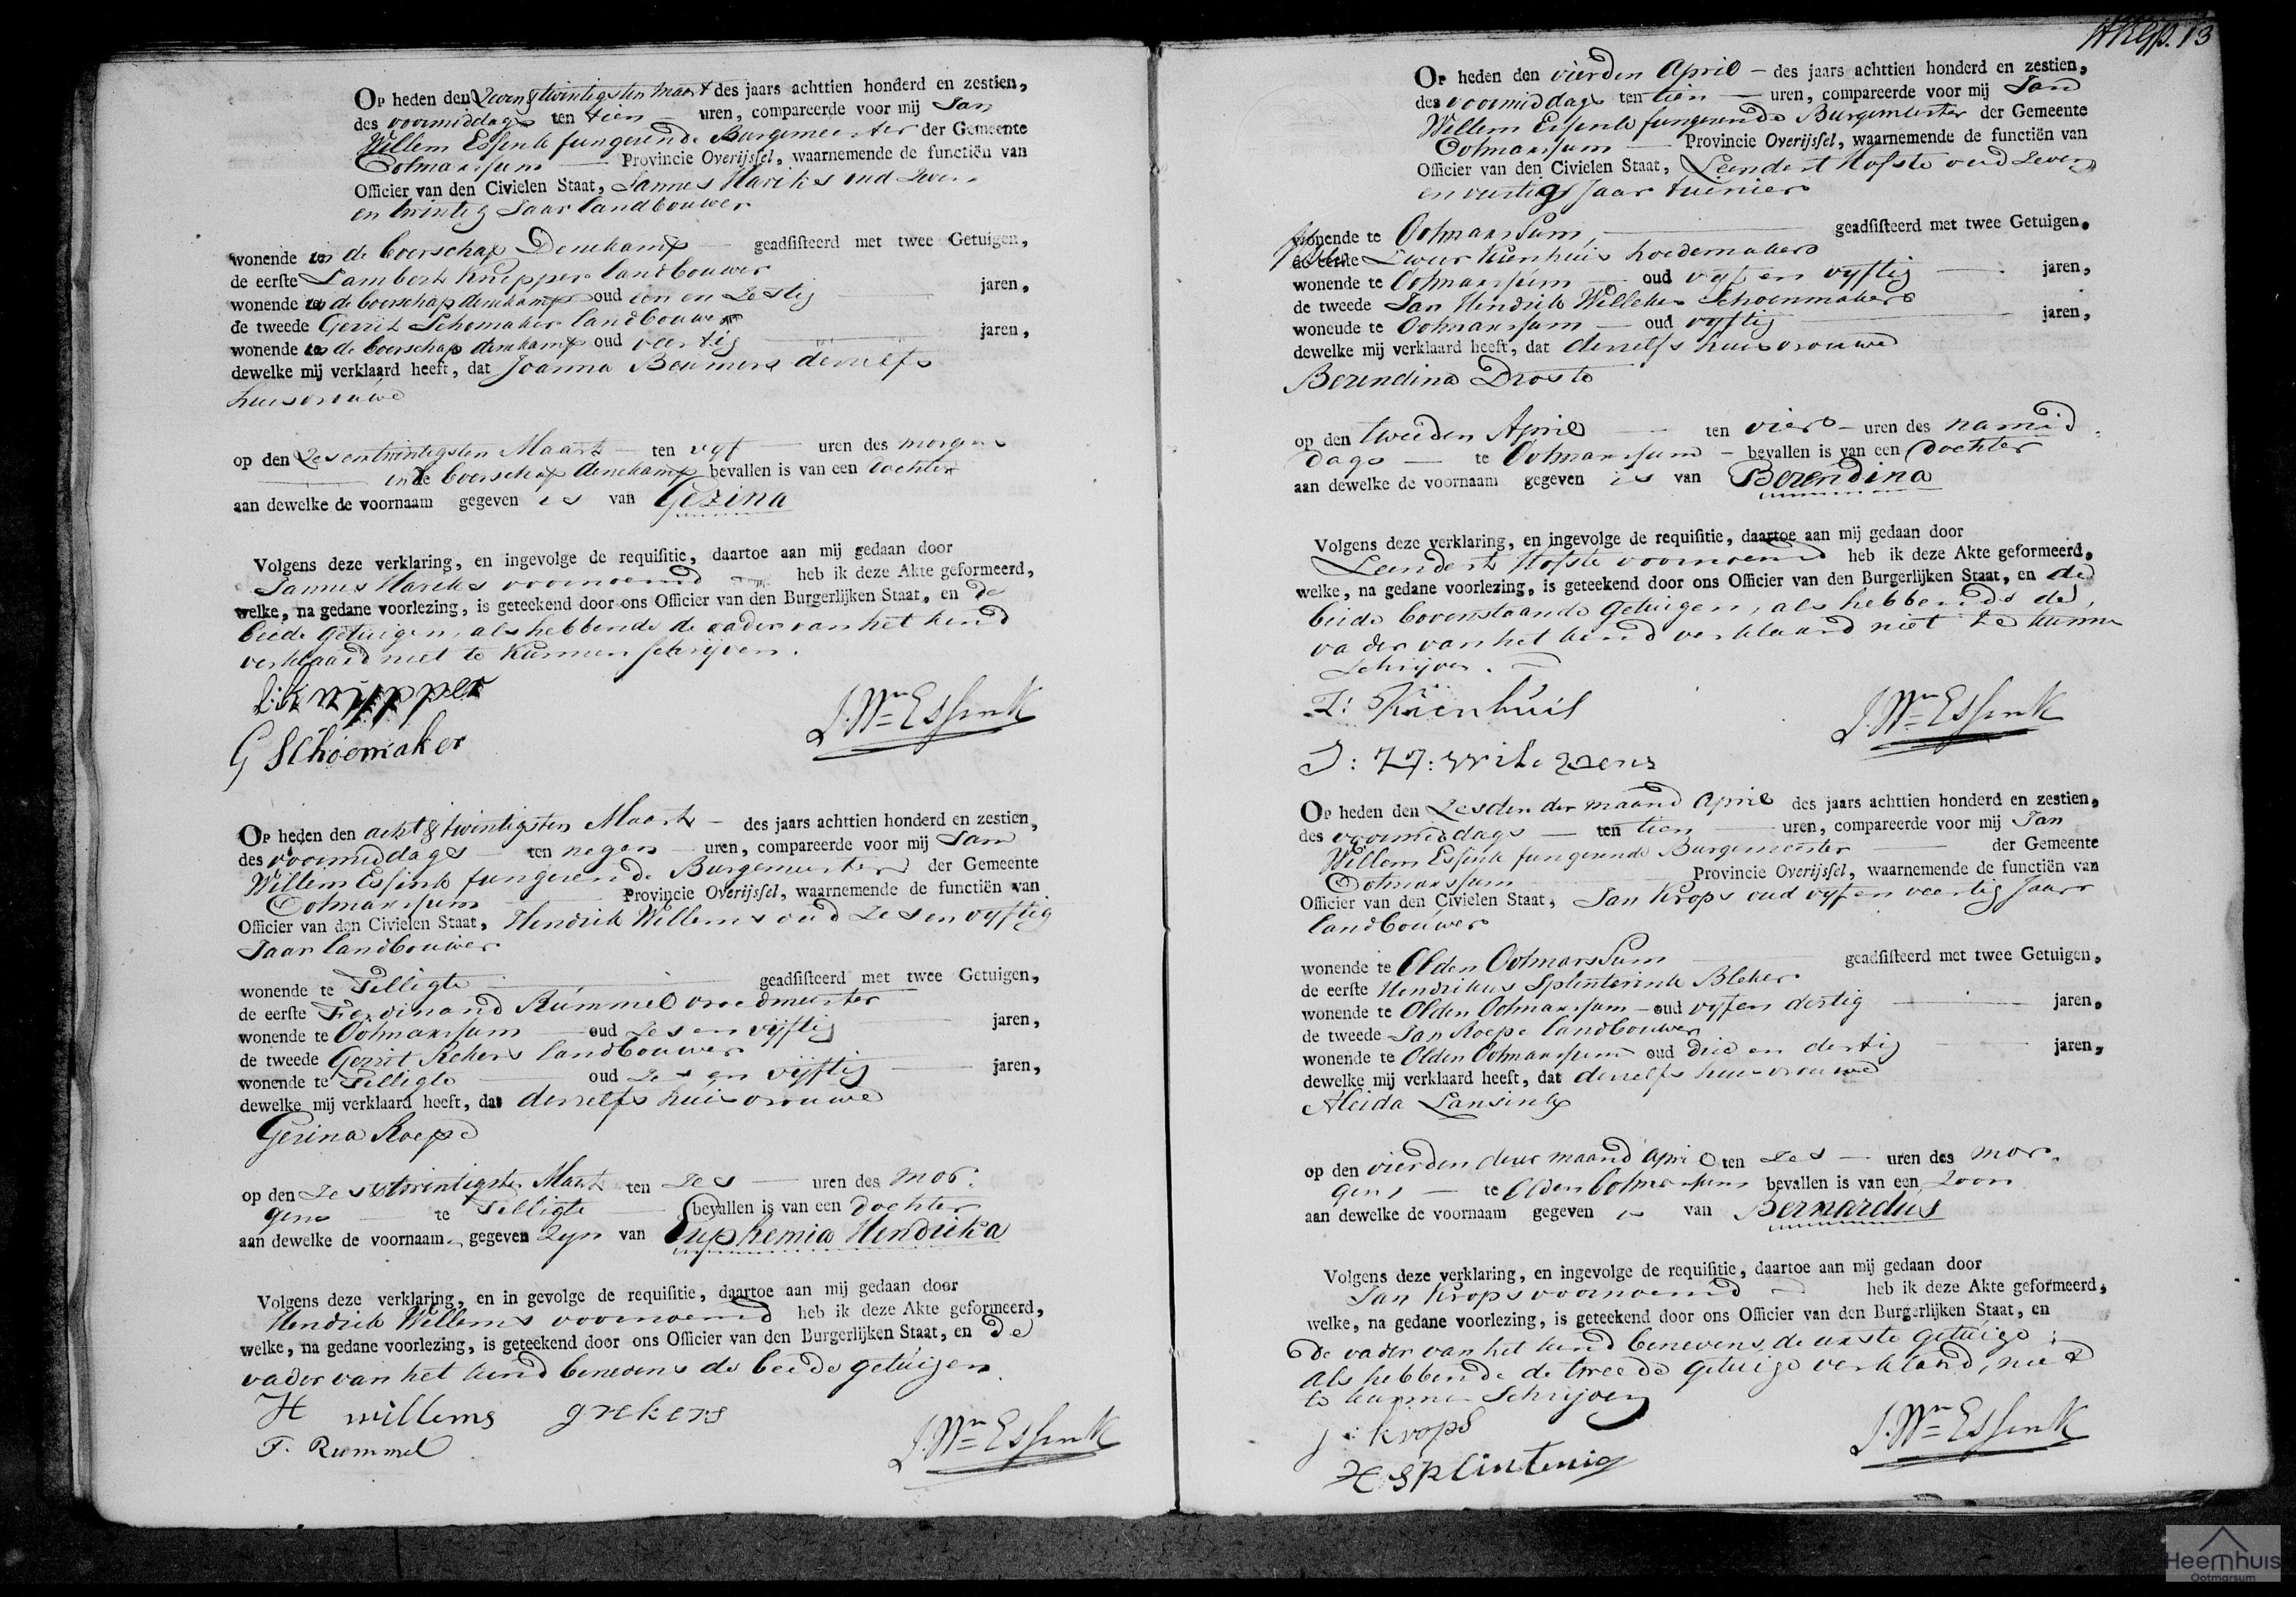 Op heden den Zeven & twintigsten Maart des jaars achttien honderd en zestien,
des voormiddags ten tien uren, compareerde voor mij Jan
Willem Essink fungerende Burgemeester der Gemeente
Ootmarssum Provincie Overijssel, waarnemende de functiën van
Officier van den Civielen Staat, Jannes Harikes oud Zeven
en twintig Jaar landbouwer
wonende in de boerschap Denekamp geadsisteerd met twee Getuigen,
de eerste Lambert Knipper landbouwer
wonende in de boerschap denekamp oud een en Zestig jaren,
de tweede Gerrit Schomaker landbouwer
wonende in de boerschap denekamp oud veertig jaren,
dewelke mij verklaard heeft, dat Joanna Beumers deszelfs
huisvrouwe
op den Zes en twintigsten Maart ten vyf uren des morgens
in de boerschap denekamp bevallen is van een dochter
aan dewelke de voornaam gegeven is van Gezina
Volgens deze verklaring, en ingevolge de requisitie, daartoe aan mij gedaan door
Jannes Harikes voornoemd heb ik deze Akte geformeerd,
welke, na gedane voorlezing, is geteekend door ons Officier van den Burgerlijken Staat, en de
beide getuigen, als hebbende de vader van het kind
verklaard niet te kunnen schrijven.
L: Knypper
J. Wm Essink
G Schoemaker
Op heden den acht & twintigsten Maart des jaars achttien honderd en zestien,
des voormiddags ten negen uren, compareerde voor mij Jan
Willem Essink fungerende Burgemeester der Gemeente
Ootmarssum Provincie Overijssel, waarnemende de functiën van
Officier van den Civielen Staat, Hendrik Willems oud Zes en vyftig
Jaar landbouwer
wonende te Tilligte geadsisteerd met twee Getuigen,
de eerste Ferdinand Rummel vroedmeester
wonende te Ootmarssum oud Zes en vijftig jaren,
de tweede Gerrit Rekers landbouwer
wonende te Tilligte oud Zes en vijftig jaren,
dewelke mij verklaard heeft, dat deszelfs huisvrouwe
Gezina Roepe
op den Zes & twintigsten Maart ten Zes uren des mor
gens te Tilligte bevallen is van een dochter
aan dewelke de voornaam gegeven Zyn van Euphemia Hendrika
Volgens deze verklaring, en in gevolge de requisitie, daartoe aan mij gedaan door
Hendrik Willems voornoemd heb ik deze Akte geformeerd,
welke, na gedane voorlezing, is geteekend door ons Officier van den Burgerlijken Staat, en de
vader van het kind benevens de beide getuigen.
H willems grekers
F. Rummel
J. Wm Essink
13
Op heden den vierden April des jaars achttien honderd en zestien,
des voormiddags ten tien uren, compareerde voor mij Jan
Willem Essink fungerende Burgemeester der Gemeente
Ootmarssum Provincie Overijssel, waarnemende de functiën van
Officier van den Civielen Staat, Leendert Hofste oud Zeven
en veertig Jaar tuinier
wonende te Ootmarssum, geadsisteerd met twee Getuigen,
de eerste Zweer Kienhuis hoedemaker
wonende te Ootmarssum oud vyf en vyftig jaren,
de tweede Jan Hendrik Willekes Schoenmaker
wonende te Ootmarssum oud vyftig jaren,
dewelke mij verklaard heeft, dat deszelfs huisvrouwe
Berendina Droste
op den tweeden April ten vier uren des namid
dags te Ootmarssum bevallen is van een dochter
aan dewelke de voornaam gegeven is van Berendina
Volgens deze verklaring, en ingevolge de requisitie, daartoe aan mij gedaan door
Leendert Hofste voornoemd heb ik deze Akte geformeerd,
welke, na gedane voorlezing, is geteekend door ons Officier van den Burgerlijken Staat, en de
beide bovenstaande getuigen, als hebbende de
vader van het kind verklaard niet te kunnen
schrijven.
Z: Kienhuis
J. Wm Essink
Op heden den Zesden der maand April des jaars achttien honderd en zestien,
des voormiddags ten tien uren, compareerde voor mij Jan
Willem Essink fungerende Burgemeester der Gemeente
Ootmarssum Provincie Overijssel, waarnemende de functiën van
Officier van den Civielen Staat, Jan Krops oud vyf en veertig Jaar
landbouwer
wonende te Olden Ootmarssum geadsisteerd met twee Getuigen,
de eerste Hendrikus Splinterink Bleker
wonende te Olden Ootmarssum oud vyf en dertig jaren,
de tweede Jan Roepe landbouwer
wonende te Olden Ootmarssum oud drie en dertig jaren,
dewelke mij verklaard heeft, dat deszelfs huisvrouwe
Aleida Lansink
op den vierden deser maand April ten Zes uren des mor
gens te Olden Ootmarssum bevallen is van een Zoon
aan dewelke de voornaam gegeven is van Bernardus
Volgens deze verklaring, en ingevolge de requisitie, daartoe aan mij gedaan door
Jan Krops voornoemd heb ik deze Akte geformeerd,
welke, na gedane voorlezing, is geteekend door ons Officier van den Burgerlijken Staat, en
de vader van het kind benevens de eerste getuige,
als hebbende de tweede getuige verklaard, niet
te kunnen schrijven
J: Krops
J. Wm Essink
H Splintenig
Heemhuis
Ootmarsum